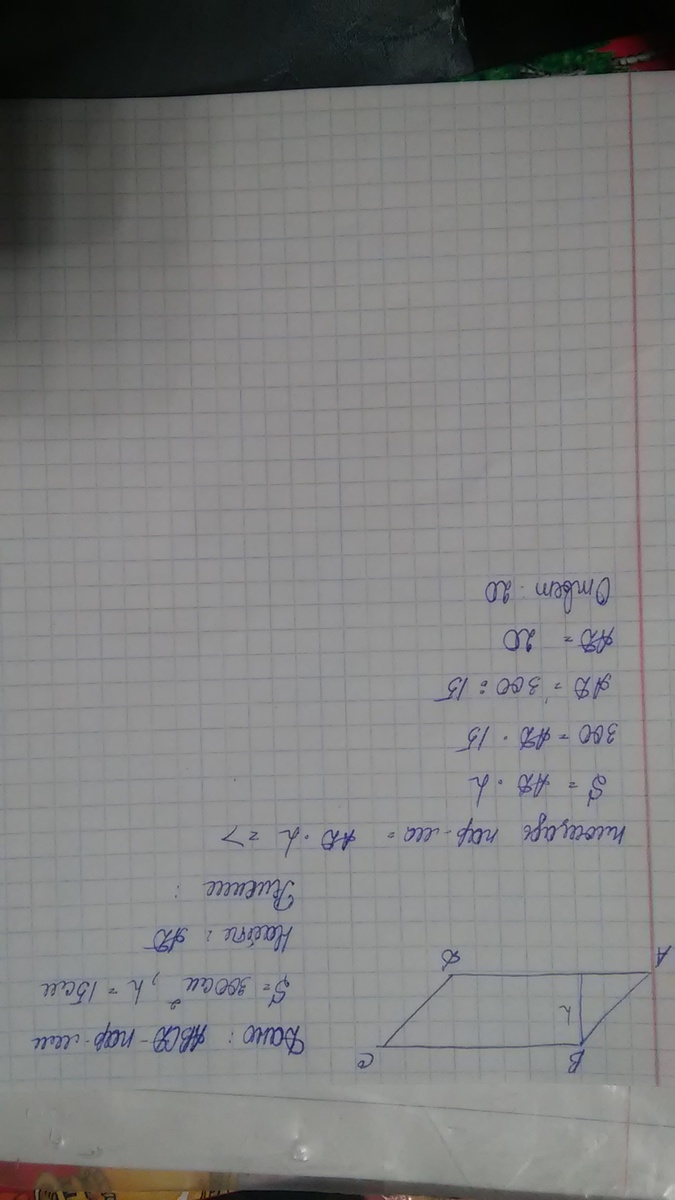 B C
h
A D
Дано: ABCD - пар-мм
S = 300см², h = 15см
Найти: AD
Решение:
площадь пар-ма = AD · h =>
S = AD · h
300 = AD · 15
AD = 300 : 15
AD = 20
Ответ 20